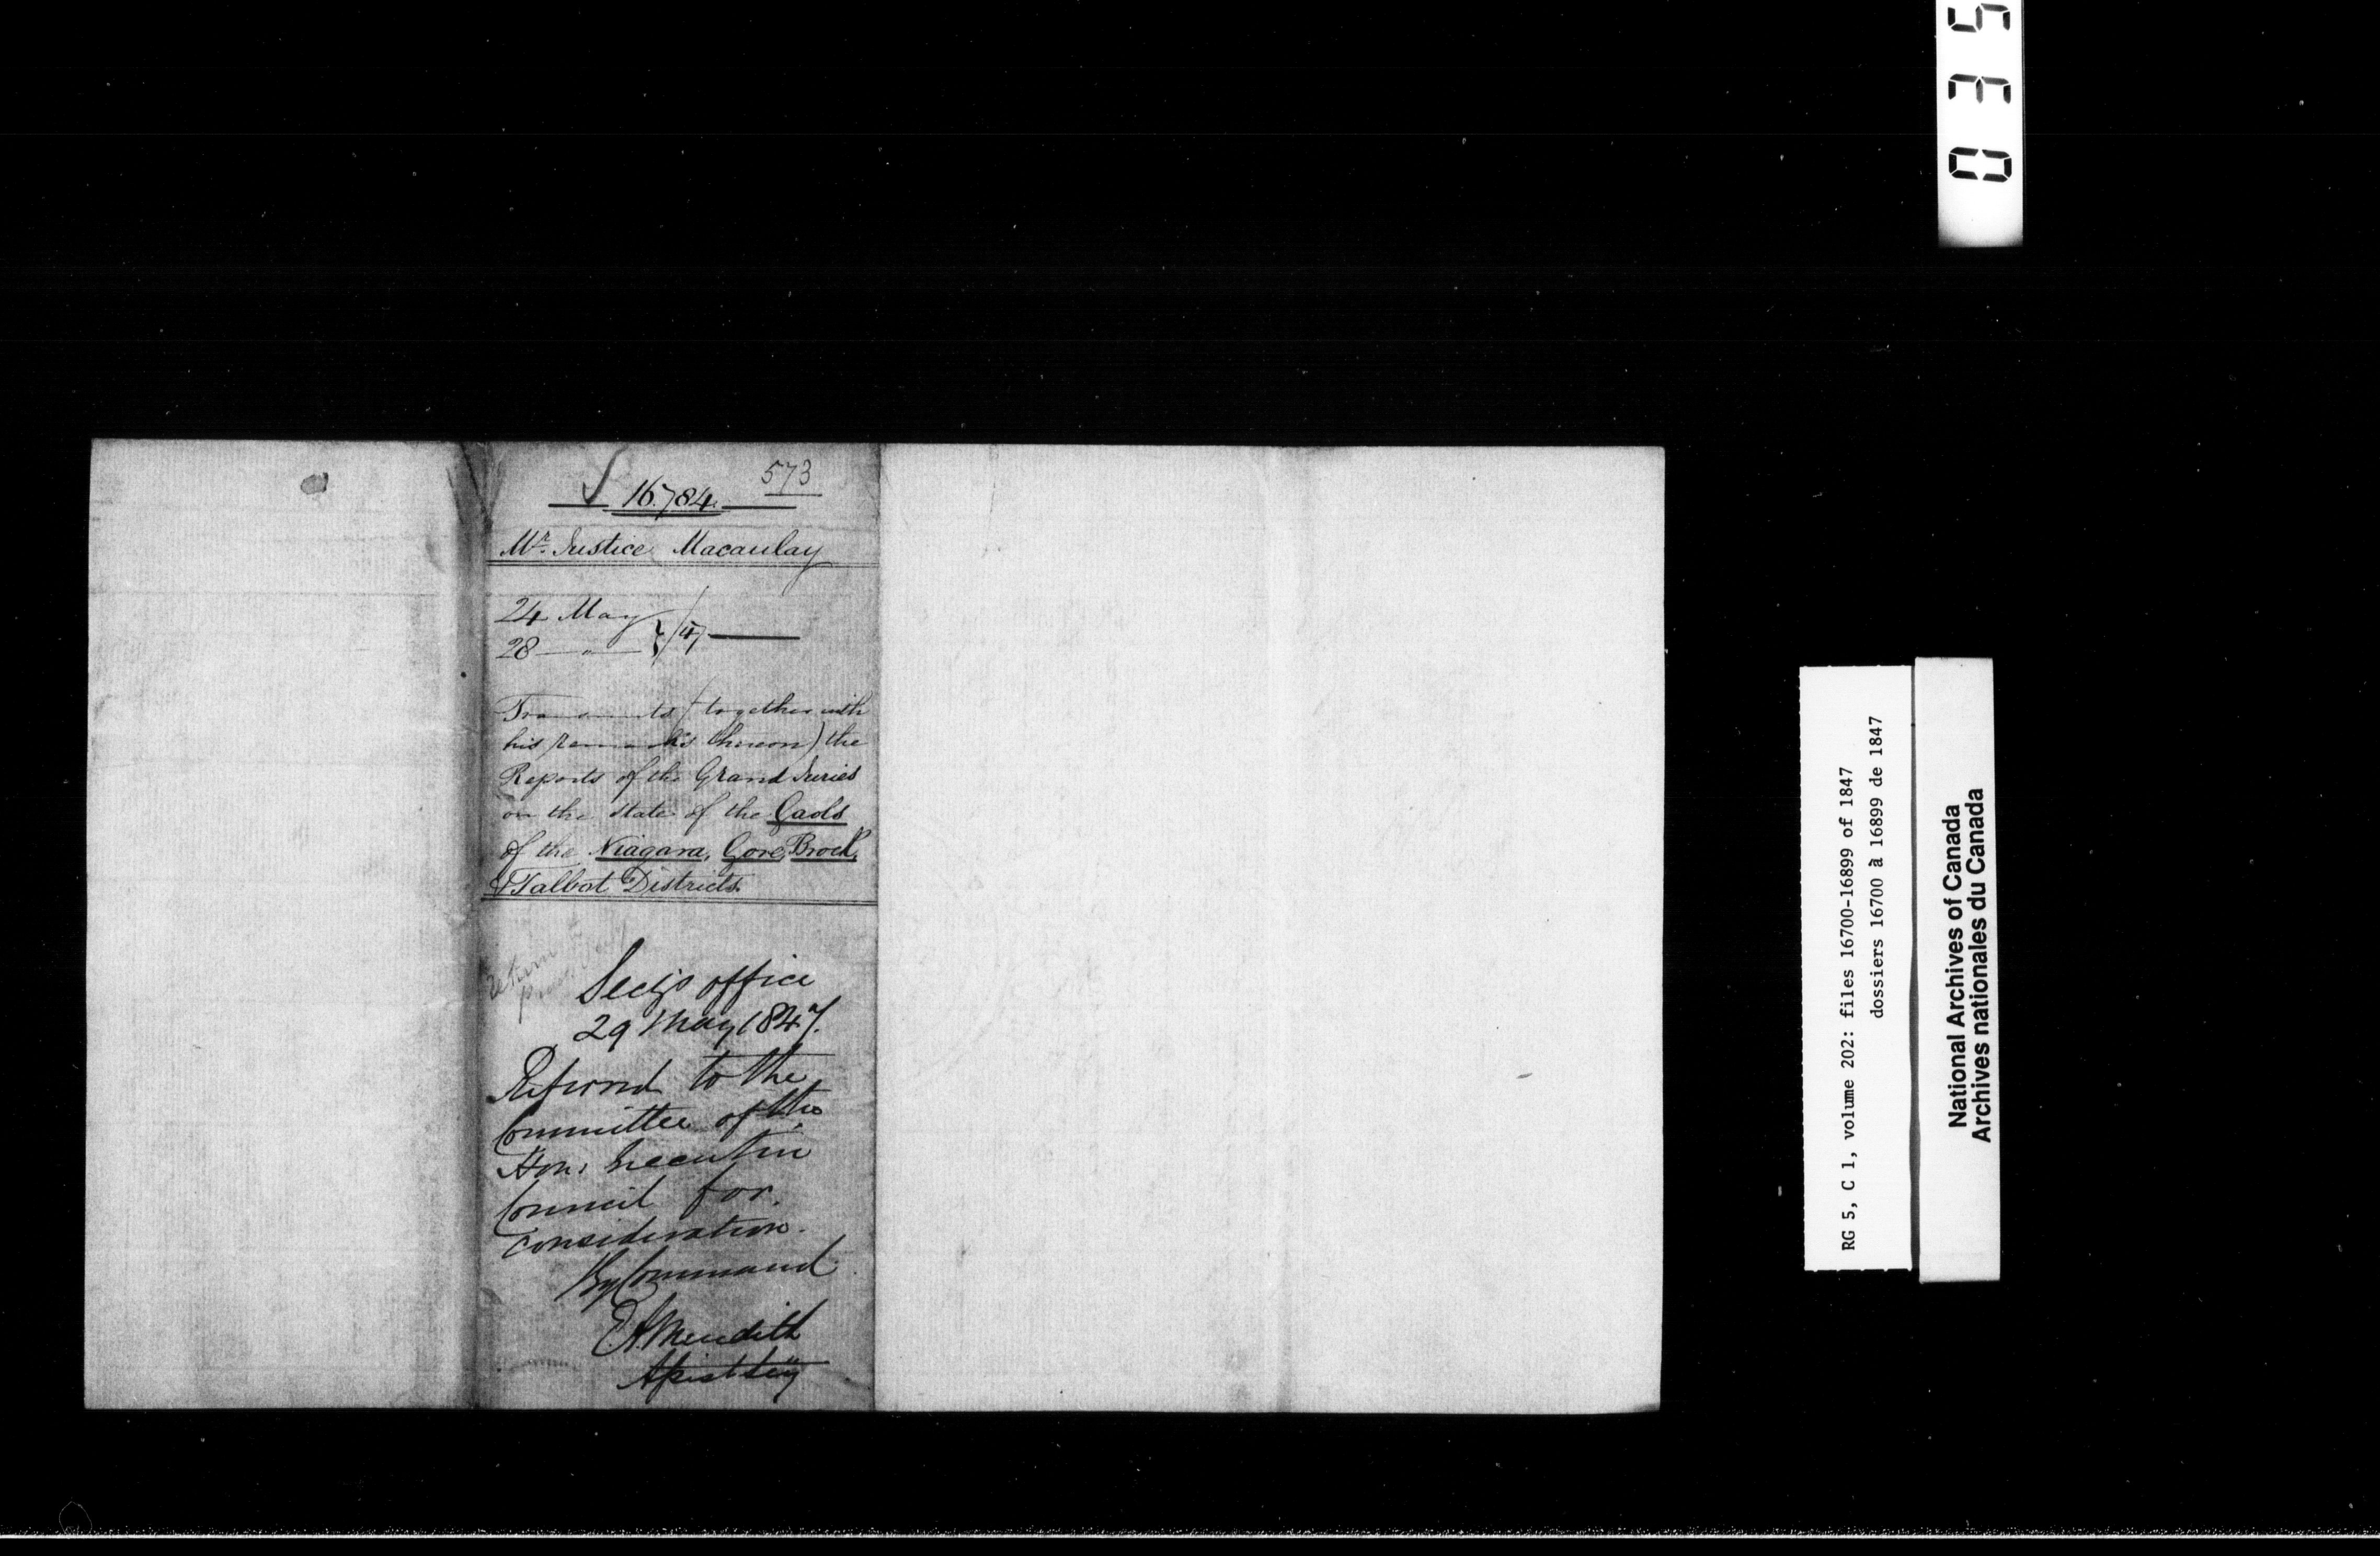 573
16.784
Mr. Justice Macaulay
24 May
28 — " — } /47
Transmits (together with
his remarks thereon) the
Reports of the Grand Juries
on the state of the Gaols
of the Niagara, Gore, Brock,
& Talbot Districts.
return
Secy's office
29 May 1847.
Referred to the
Committee of the
Hon: Executive
Council for
consideration.
By Command
E A Meredith
Assist Secy
035
RG 5, C 1, volume 202: files 16700-16899 of 1847
dossiers 16700 à 16899 de 1847
National Archives of Canada
Archives nationales du Canada